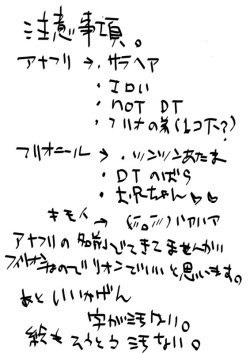 注意事項。
アナフリ → サラヘア
・エロい
・NOT DT
・フリオの弟(1コ下?)
フリオニール → ・ツンツンあたま
・DT のばら
キモイ → ハァハァ
アナフリの名前でてきてませんが
フィリオンなのでリオンでいいと思います。
あと いいかげん
字が汚ない。
絵もそうとう汚ない。